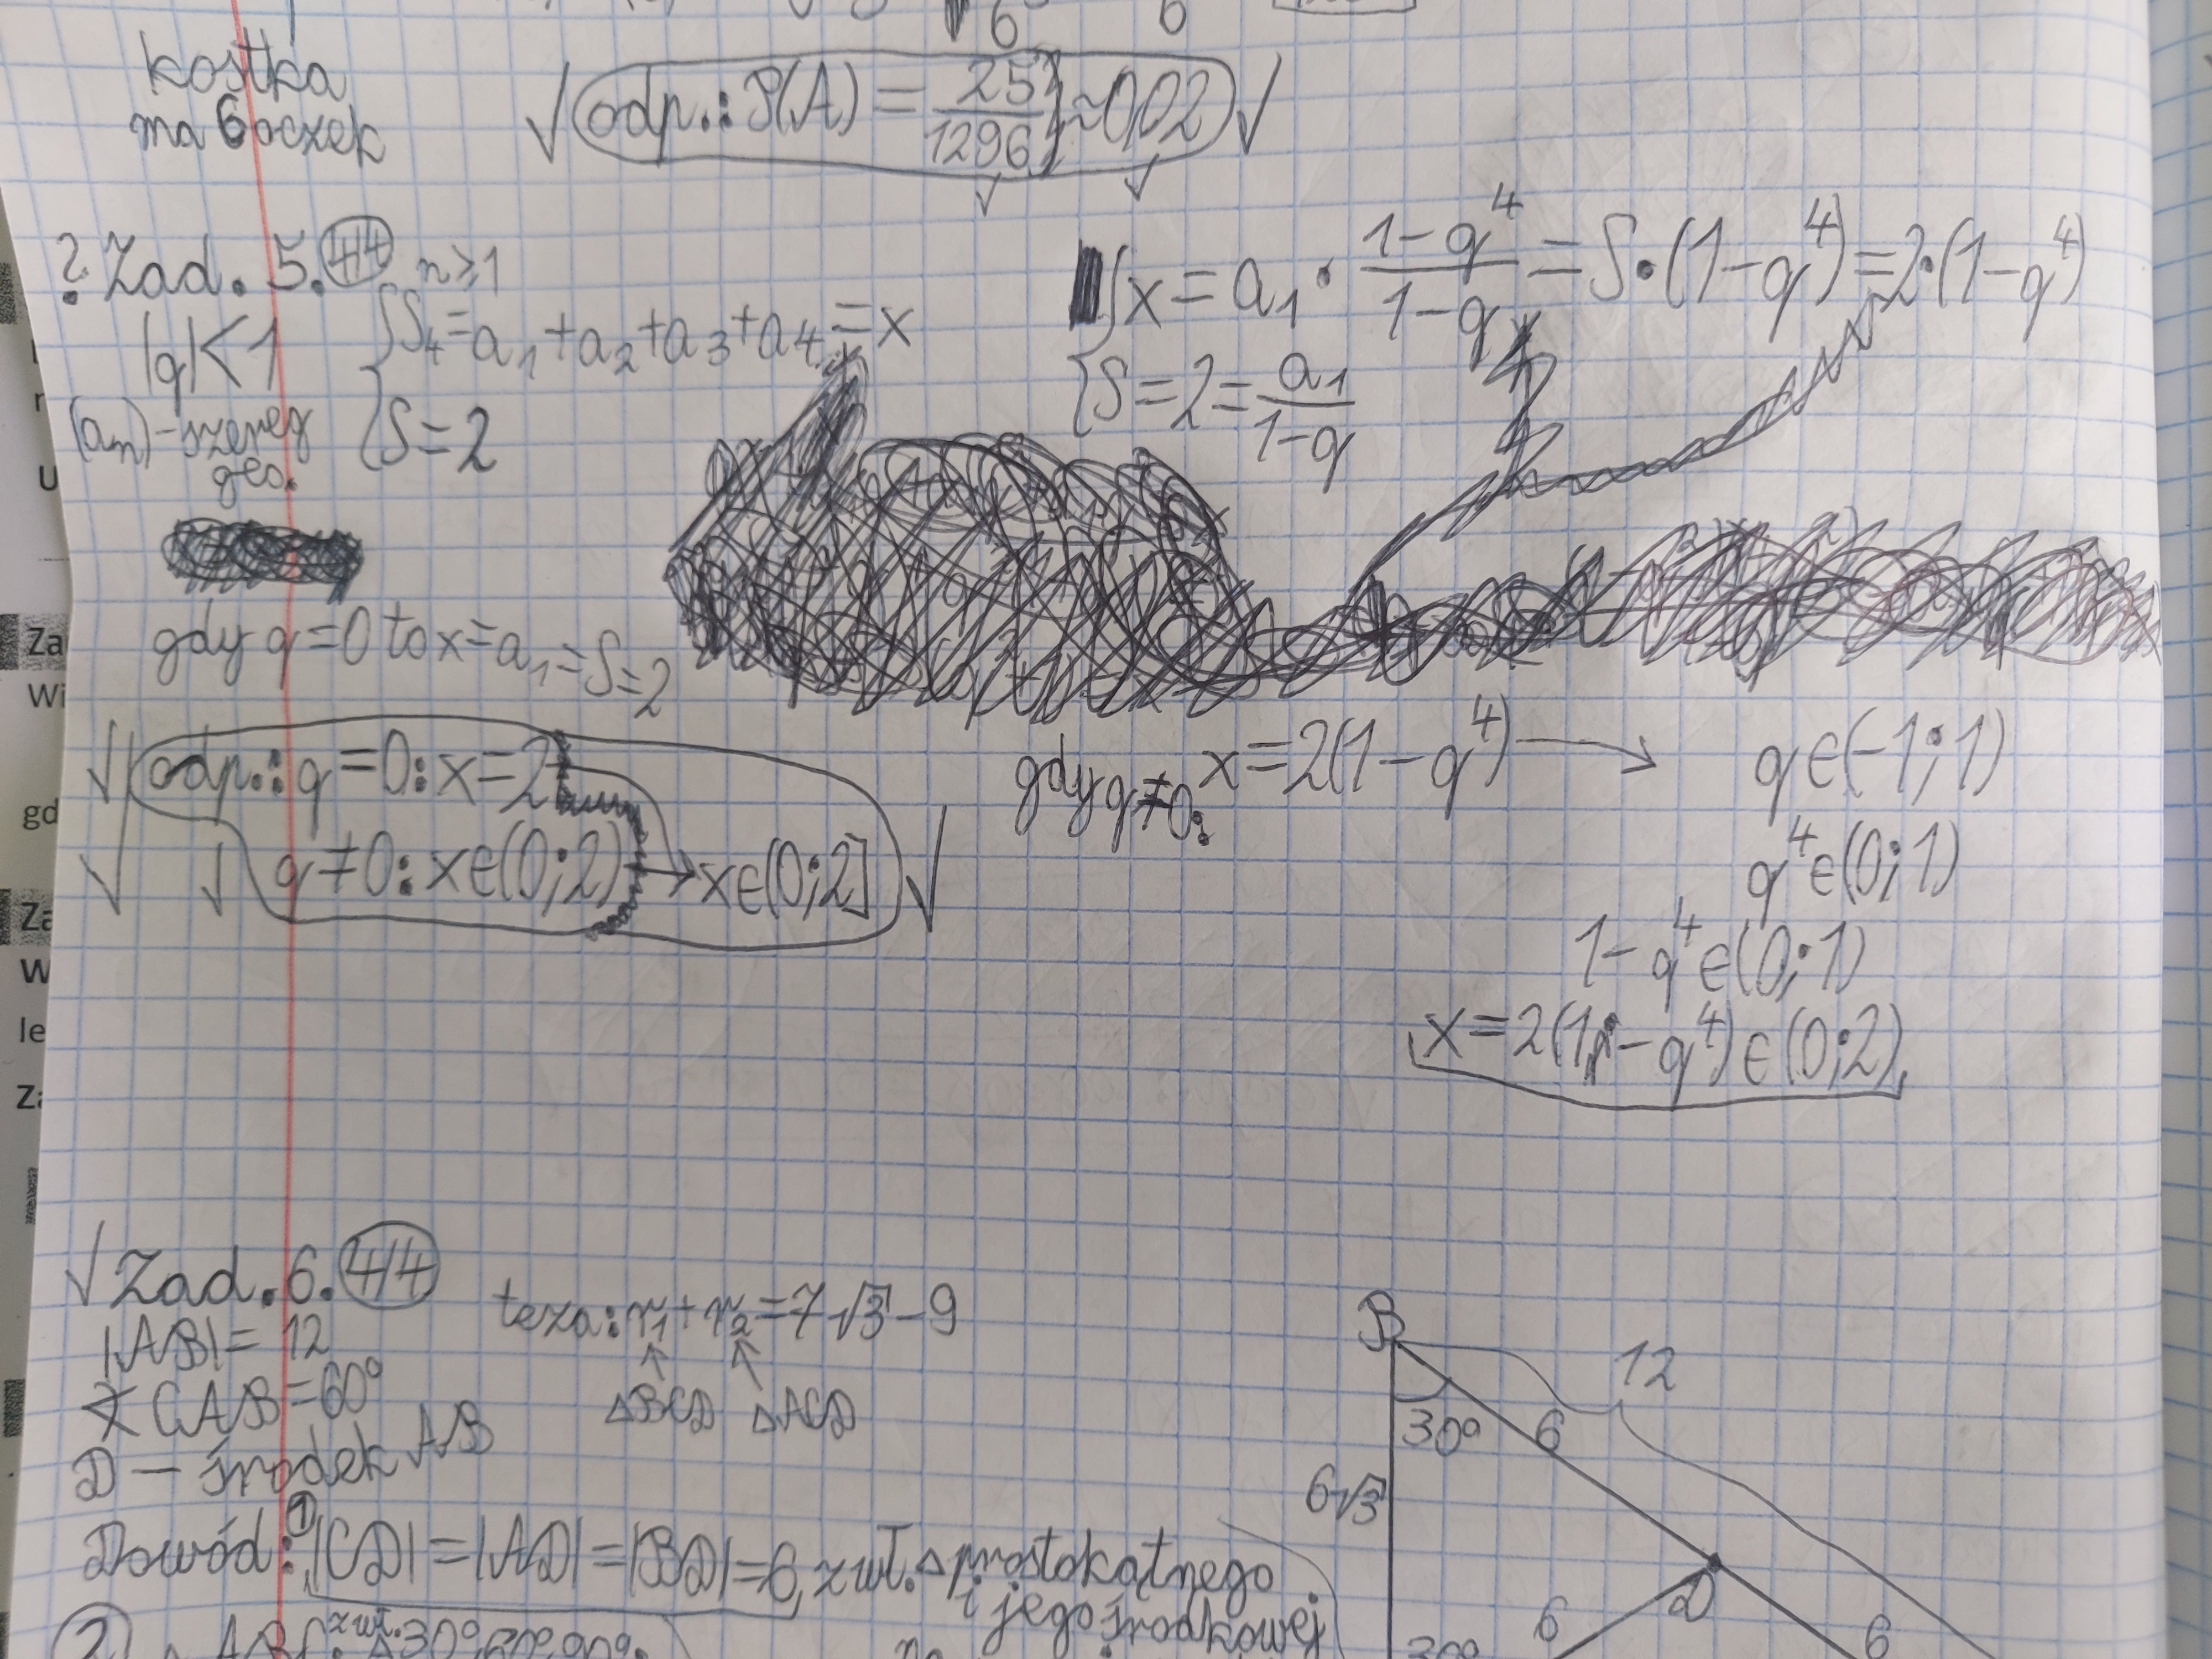 6 6
kostka
ma 6 oczek
√ odp.: P(A) = 25/1296 ≈ 0,02 √
√ √
? Zad. 5. 4/4 n⩾1
|q|<1
(aₙ) - szereg
geo.
{S₄=a₁+a₂+a₃+a₄=x
{S=2
{x = a₁ • (1-q⁴)/(1-q) = S•(1-q⁴)=2•(1-q⁴)
{S=2=a₁/(1-q)
gdy q=0 to x=a₁=S=2
√ odp.: q=0: x=2
√ √ q≠0: x∈(0;2) → x∈(0;2] √
gdy q≠0: x=2(1-q⁴) → q∈(-1;1)
q⁴∈(0;1)
1-q⁴∈(0;1)
x=2(1-q⁴)∈(0;2)
√ Zad. 6. 4/4
|AB|= 12
∢CAB=60°
D — środek AB
teza: r₁+r₂=7√3-9
↑ ↑
△BCD △ACD
Dowód: ① |CD|=|AD|=|BD|=6, z wł. △prostokątnego
i jego środkowej
② △ABC: z wł. △30°,60°,90°.
B
12
30° 6
6√3
D
6 6
30°